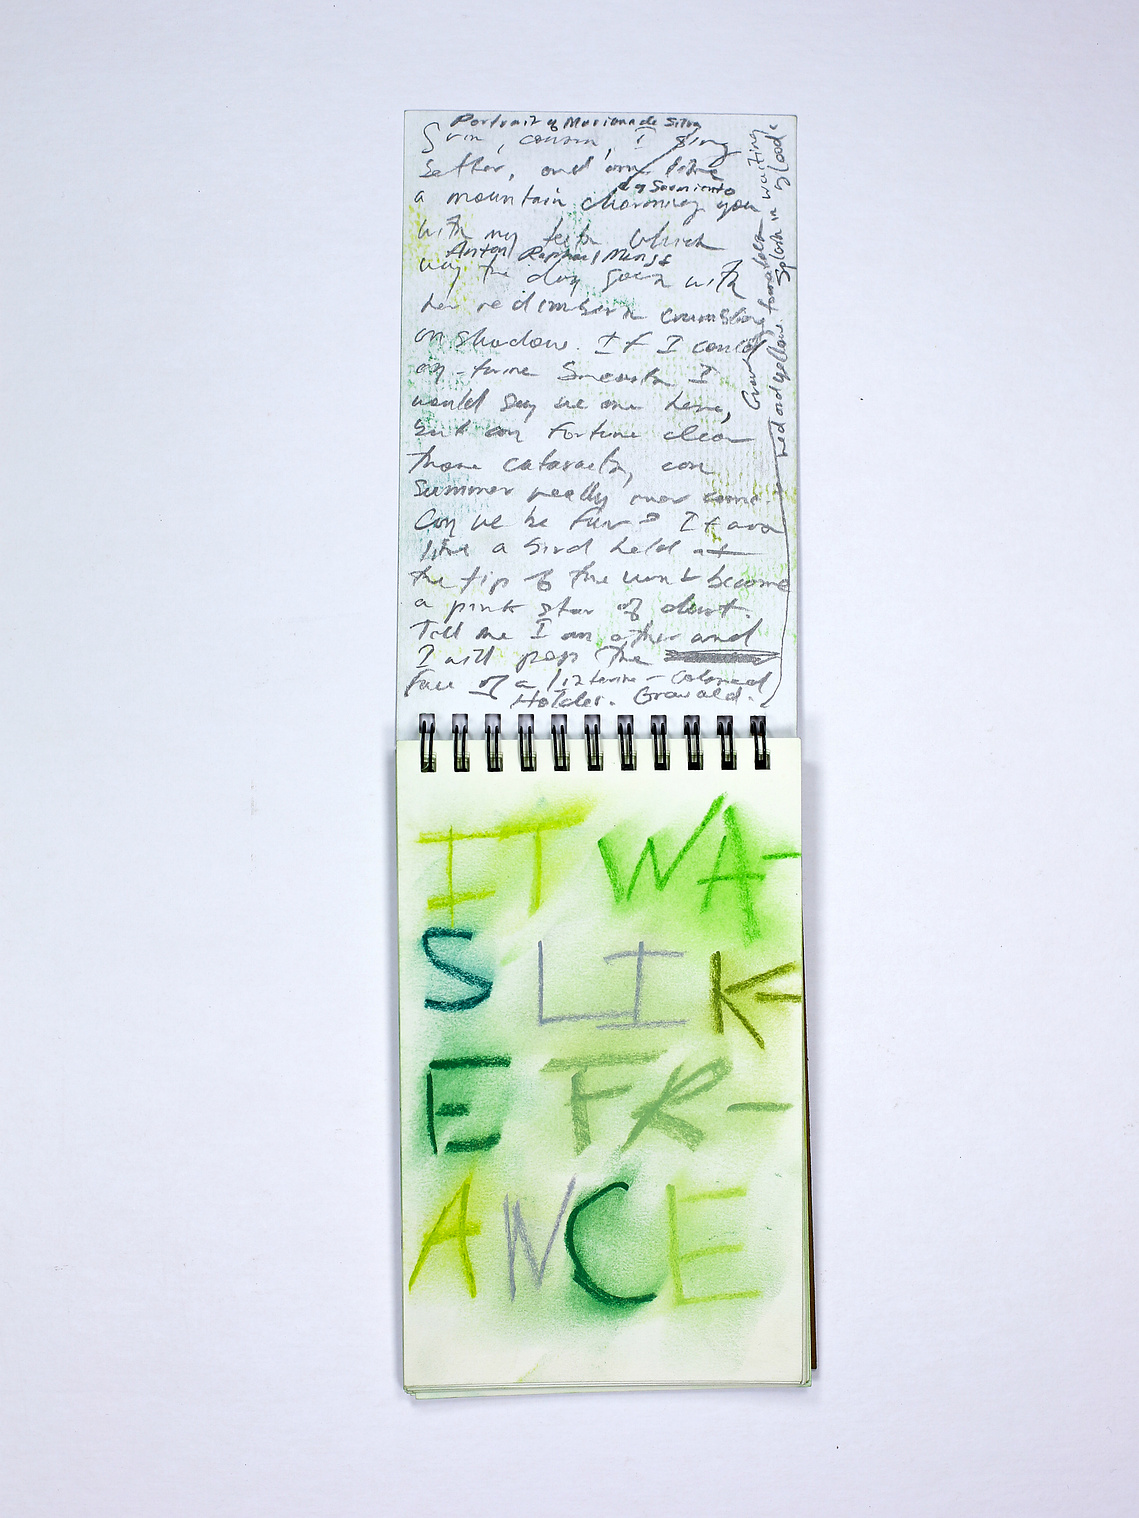 Portrait of Mariana de Silva
Grin, cousin, I sing
better, and am like
y Sarmiento
a mountain charming you
with my teeth. Which
Anton Raphael Mengs
way the day goes with
her red embers crumbling
on shadow. If I could
I
would say we are here,
but can fortune clear
those cataracts, can
Summer really ever come.
Can we be fair? If ava
like a bird held at
the tip of the won't become
a pink star of dust.
Tell me I am other and
I will pop the
face of a listerine-colored
Holder. Growald.
Growing tomatoes, waiting
red and yellow. Splash in blood.
IT WA-
S LIK-
E FR-
ANCE